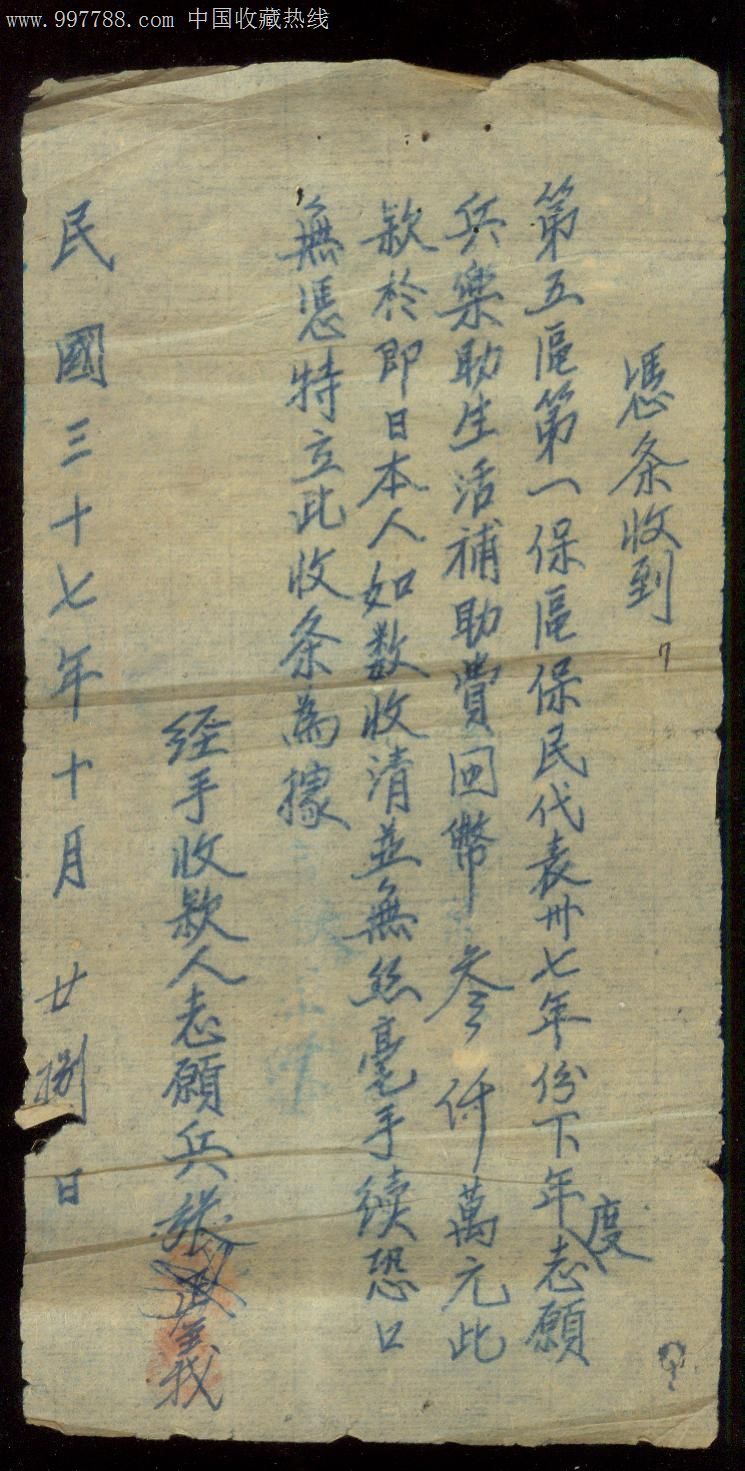 www.997788.com 中国收藏热线
憑条收到
第五區第一保區保民代表卅七年份下年度志願
兵樂助生活補助費囯幣叁仟萬元此
款於即日本人如数收清並無絲毫手續恐口
無憑特立此收条為據
经手收款人志願兵張義
民國三十七年十月廿捌日